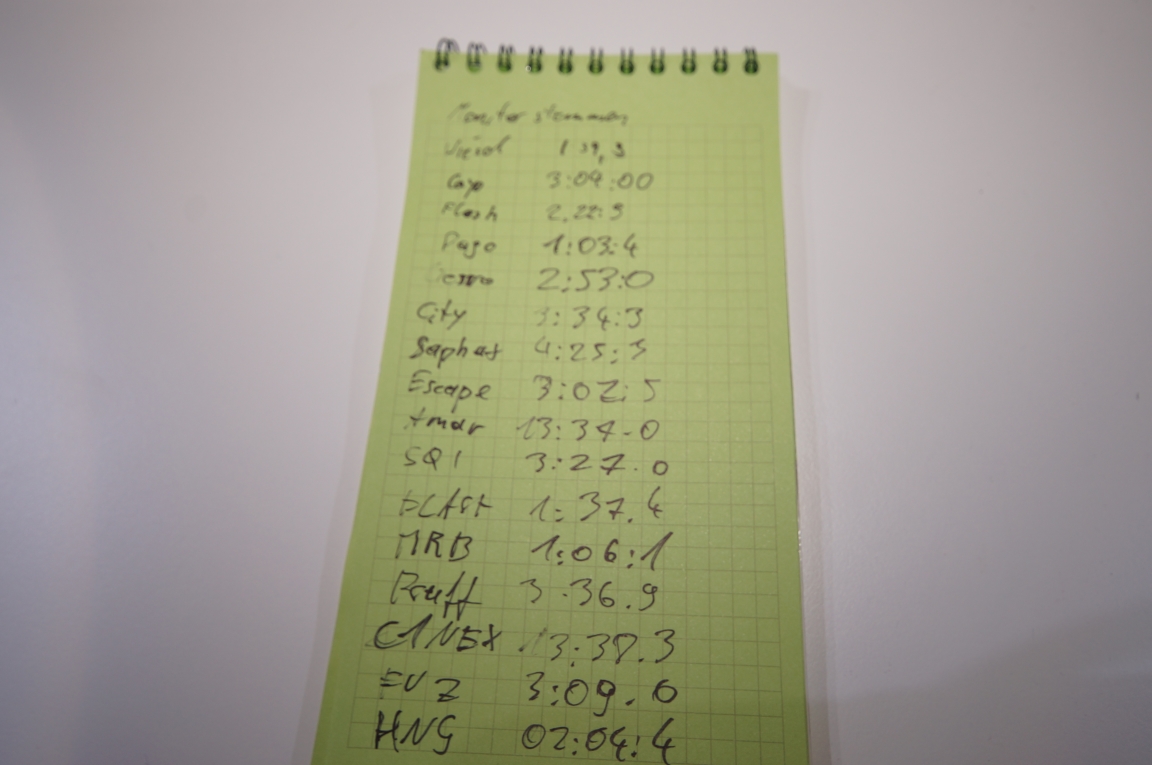 Monster stemmen
1 39,3
Cayo 3:09:00
Flash 2.22:9
Pago 1:03:4
2:53:0
City 3:34:3
Saphat 4:25:3
Escape 3:02:5
13:34.0
SQ1 3:27.0
1:37.4
MRB 1:06:1
3.36.9
3:38.3
3:09.0
HNG 02:04:4